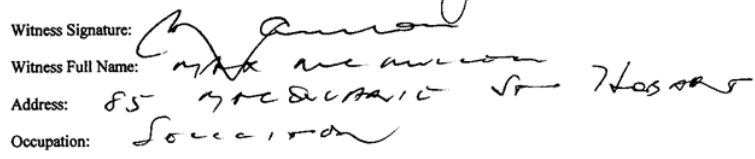 Witness Signature:
Witness Full Name: MAX
Address: 85 MACQUARIE ST HOBART
Occupation: SOLICITOR